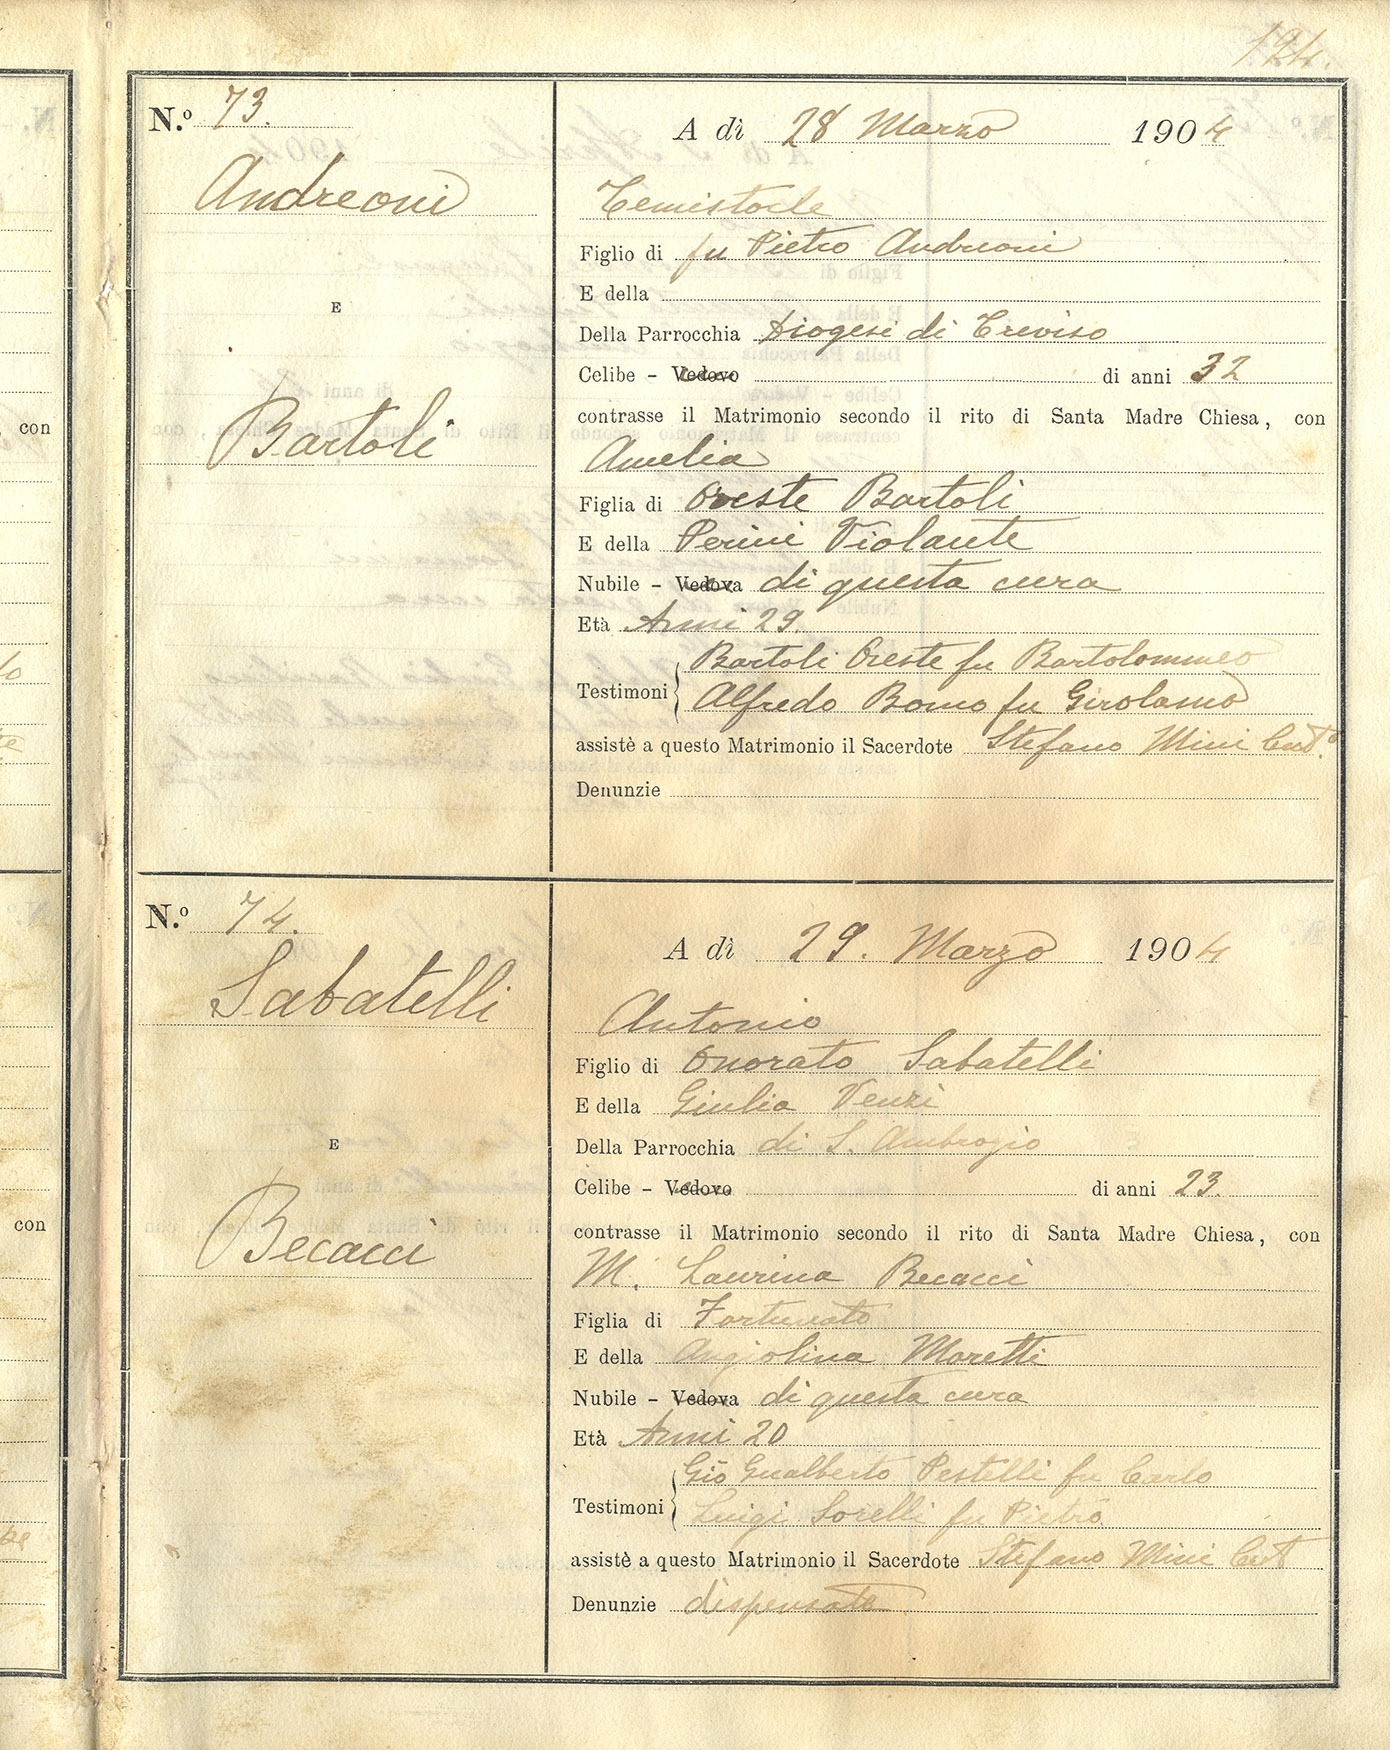 124.
N.º 73.
Andreoni
E
Bartoli
A dì 28 Marzo 1904
Temistocle
Figlio di fu Pietro Andreoni
E della
Della Parrocchia Diogesi di Treviso
Celibe – Vedovo di anni 32
contrasse il Matrimonio secondo il rito di Santa Madre Chiesa, con
Amelia
Figlia di Oreste Bartoli
E della Perini Violante
Nubile – Vedova di questa cura
Età Anni 29.
Bartoli Oreste fu Bartolommeo
Testimoni
Alfredo Bomo fu Girolamo
assistè a questo Matrimonio il Sacerdote Stefano Mini
Denunzie
N.º 74.
Sabatelli
E
Becacci
A dì 29. Marzo 1904
Antonio
Figlio di Onorato Sabatelli
E della Giulia Venzi
Della Parrocchia di S. Ambrogio
Celibe – Vedovo di anni 23.
contrasse il Matrimonio secondo il rito di Santa Madre Chiesa, con
M. Laurina Becacci
Figlia di Fortunato
E della Angiolina Moretti
Nubile – Vedova di questa cura
Età Anni 20
Gio Gualberto Pestelli fu Carlo
Testimoni
Luigi Sorelli fu Pietro
assistè a questo Matrimonio il Sacerdote Stefano Mini
Denunzie dispensate
con
con